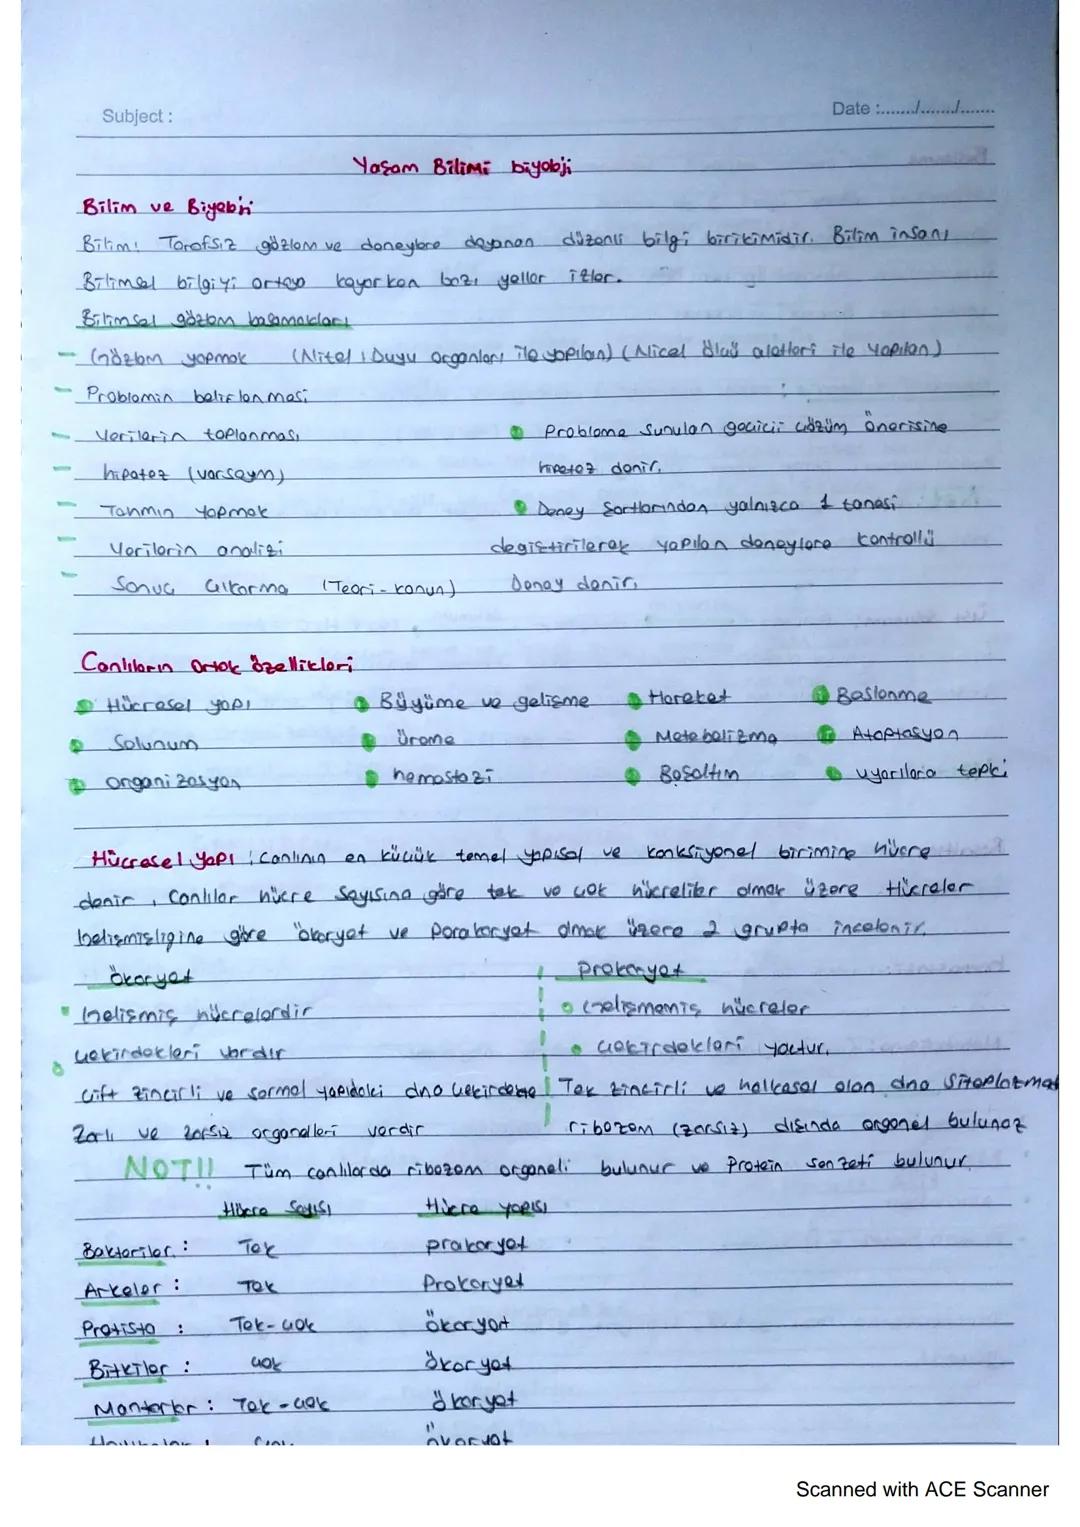 Subject :
Date :......./......./.......
Yaşam Bilimi biyoloji
Bilim ve Biyoloji
Bilim: Tarafsız gözlem ve deneylere dayanan düzenli bilgi birikimidir. Bilim insanı
Bilimsel bilgiyi ortaya koyarken bazı yollar izler.
Bilimsel gözlem basamakları
- Gözlem yapmak (Nitel: Duyu organları ile yapılan) (Nicel ölçü aletleri ile yapılan)
- Problemin belirlenmesi
- Verilerin toplanması
Probleme sunulan geçici çözüm önerisine
- hipotez (varsayım)
hipotez denir.
- Tahmin yapmak
Deney şartlarından yalnızca 1 tanesi
- Verilerin analizi
degiştirilerek yapılan deneylere kontrollü
- Sonuç Çıkarma (Teori - kanun)
Deney denir.
Canlıların Ortak özellikleri
Hücresel yapı
Büyüme ve gelişme
Hareket
Beslenme
Solunum
üreme
Metebolizma
Ataptasyon
organizasyon
hemostazi
Boşaltım
uyarılara tepki
Hücresel yapı : Canlının en küçük temel yapısal ve konksiyonel birimine hücre
denir, Canlılar hücre sayısına göre tek ve çok hücreliler olmak üzere Hücreler
gelişmişligine göre ökaryot ve parakaryot olmak üzere 2 grupta incelenir.
ökaryot
prokaryot
Gelişmiş hücrelerdir
Gelişmemiş hücreler
çekirdekleri vardır
çekirdekleri yoktur.
çift zincirli ve sarmal yapıdaki dna çekirdekte
Tek zincirli ve halkasal olan dna Sitoplazmada
Zarlı ve zarsız organelleri vardır
ribozom (zarsız) dışında organel bulunaz
NOT!! Tüm canlılarda ribozom organeli bulunur ve Protein sentezi bulunur.
Hücre Sayısı
Hücre yapısı
Bakteriler : Tek prokaryot
Arkeler : Tek Prokaryot
Protista : Tek-çok ökaryot
Bitkiler : çok ökaryot
Mantarlar : Tek-çok ökaryot
ökaryot
Scanned with ACE Scanner